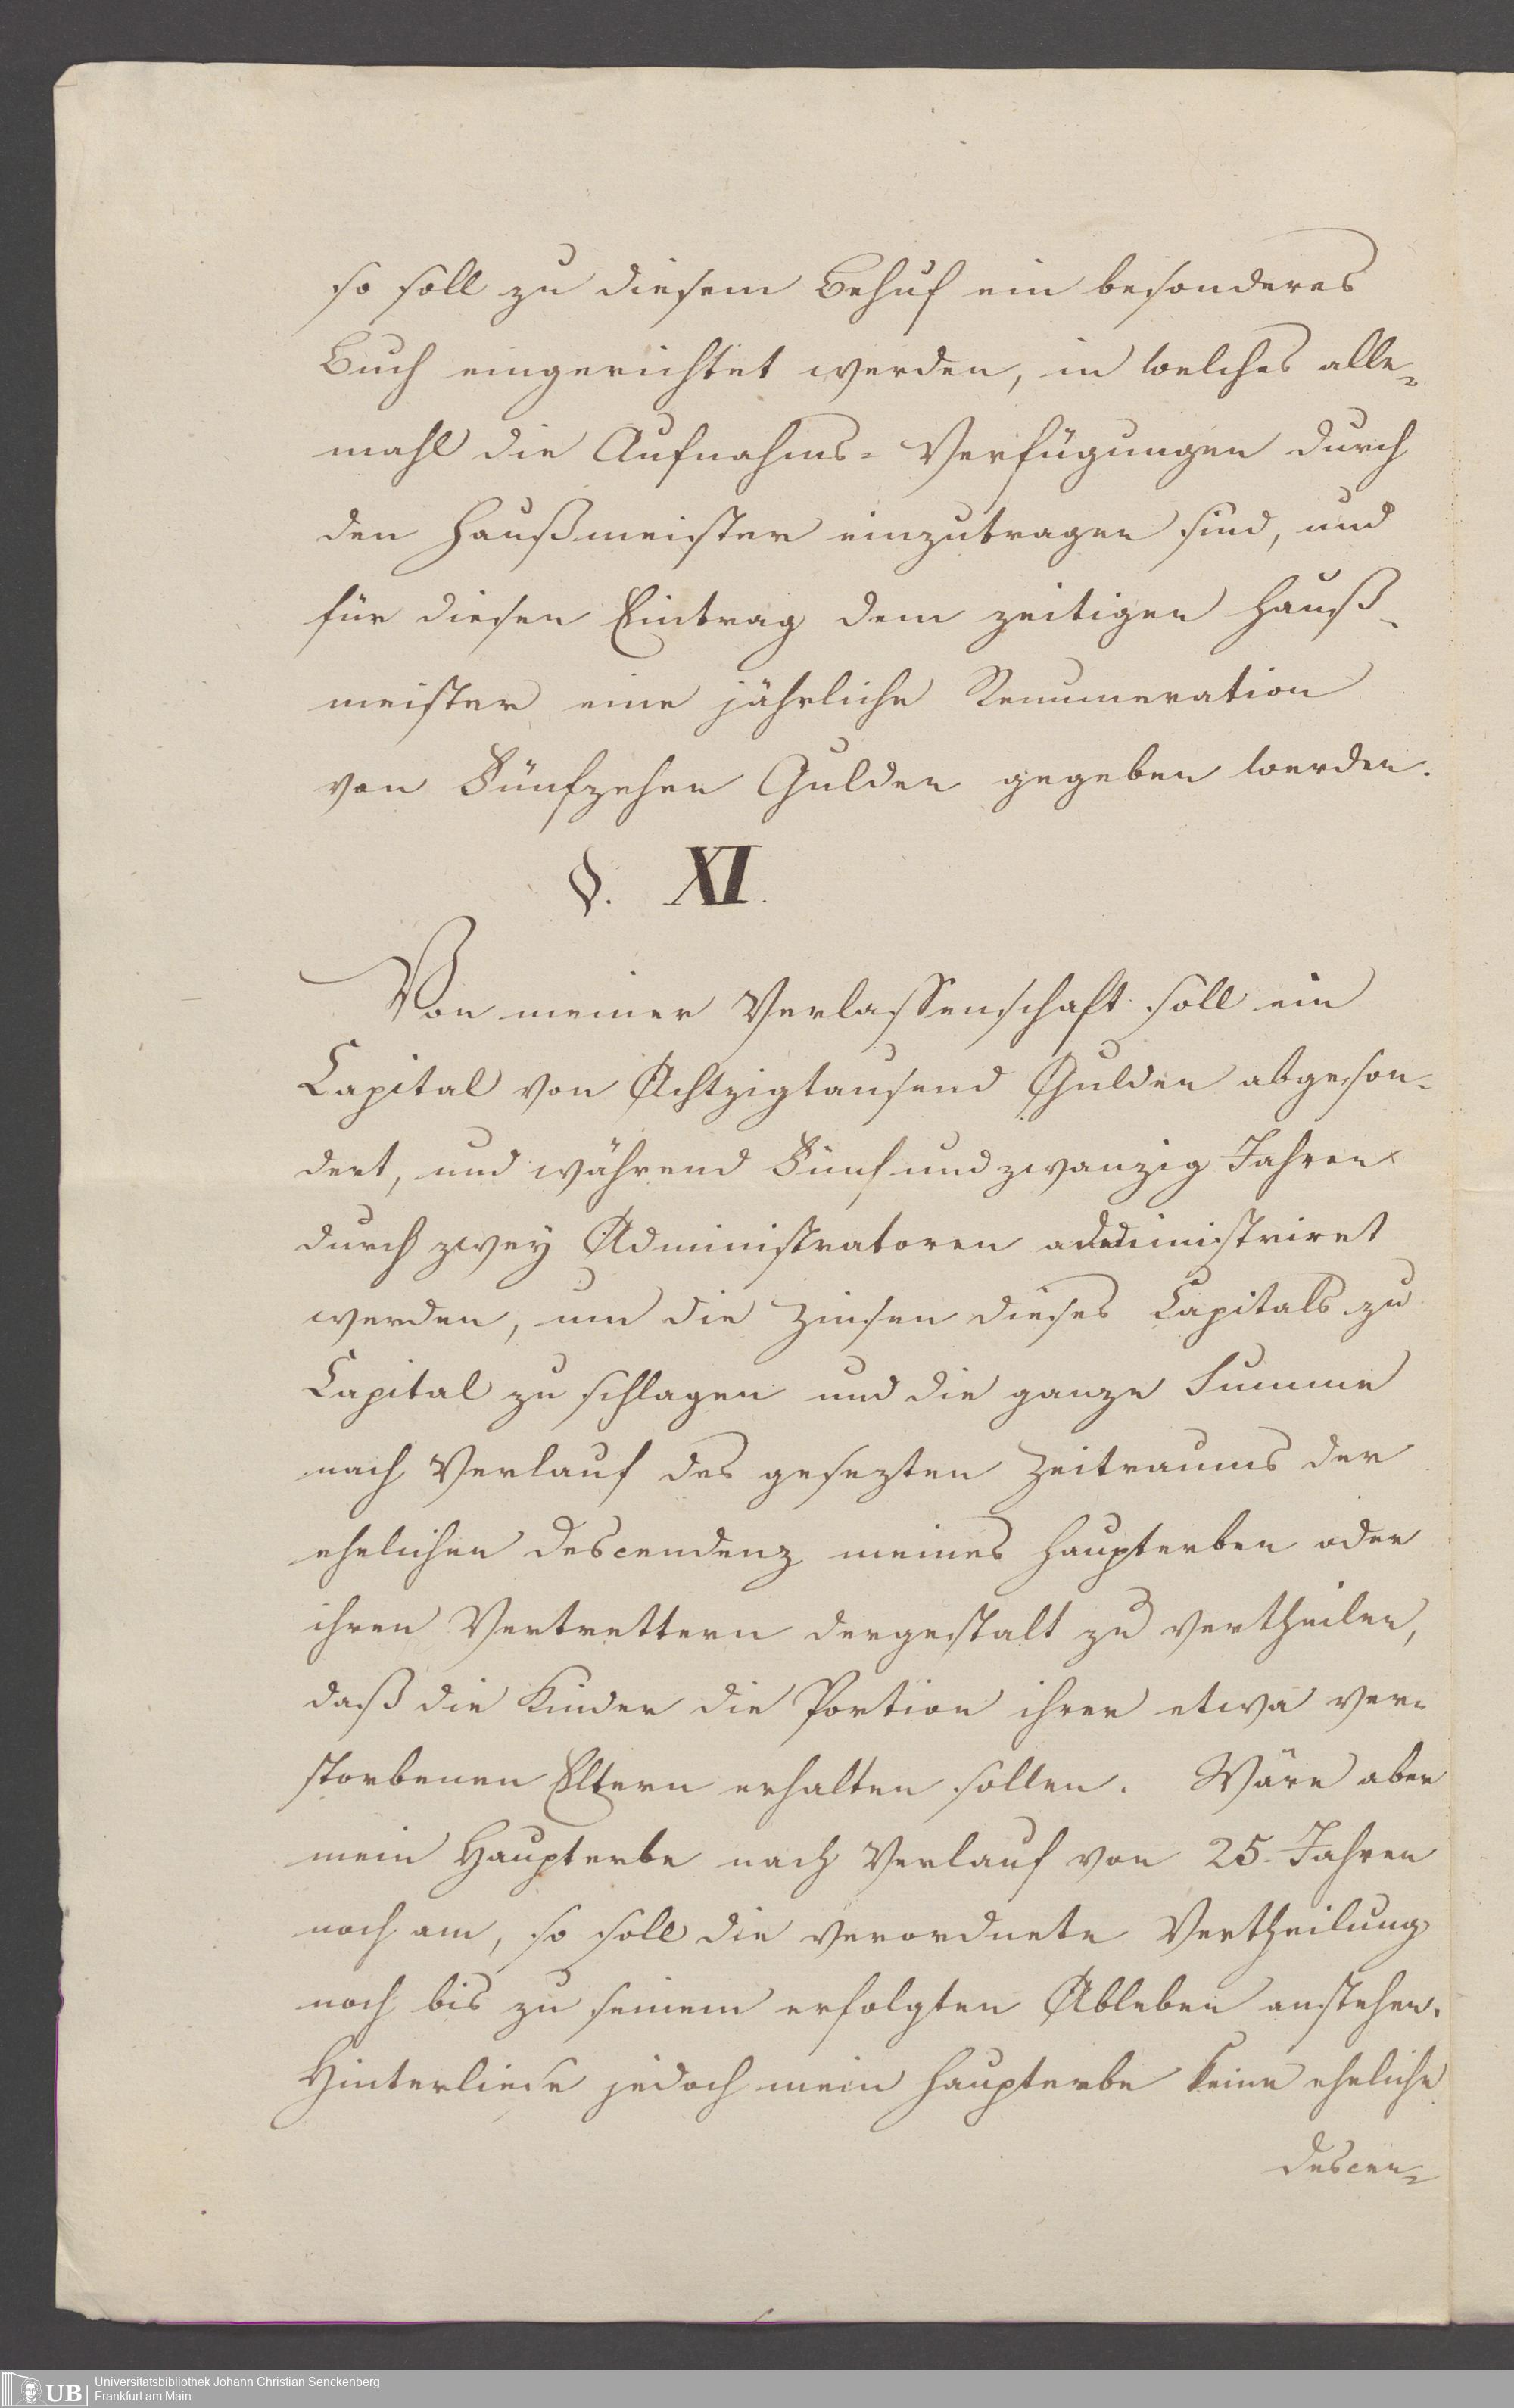 so soll zu diesem Behuf ein besonderes
Buch eingerichtet werden, in welches alle=
mahl die Aufnahms=Verfügungen durch
den Haußmeister einzutragen sind, und
für diesen Eintrag dem zeitigen Hauß-
meister eine jährliche Renumeration
von Fünfzehen Gulden gegeben werden.
§. XI.
Von meiner Verlassenschaft soll ein
Capital von Achtzigtausend Gulden abgeson-
dert, und während Fünfundzwanzig Jahren
durch zwey Administratoren administriret
werden, um die Zinsen dieses Capitals zu
Capital zu schlagen und die ganze Summe
nach Verlauf des gesezten Zeitraums der
ehelichen Descendenz meines Haupterben oder
ihren Vertrettern dergestalt zu vertheilen,
daß die Kinder die Portion ihrer etwa ver-
storbenen Eltern erhalten sollen. Wäre aber
mein Haupterbe nach Verlauf von 25. Jahren
noch am, so soll die verordnete Vertheilung
noch bis zu seinem erfolgten Ableben anstehen.
Hinterliese jedoch mein Haupterbe keine eheliche
Descen=
UB
Universitätsbibliothek Johann Christian Senckenberg
Frankfurt am Main